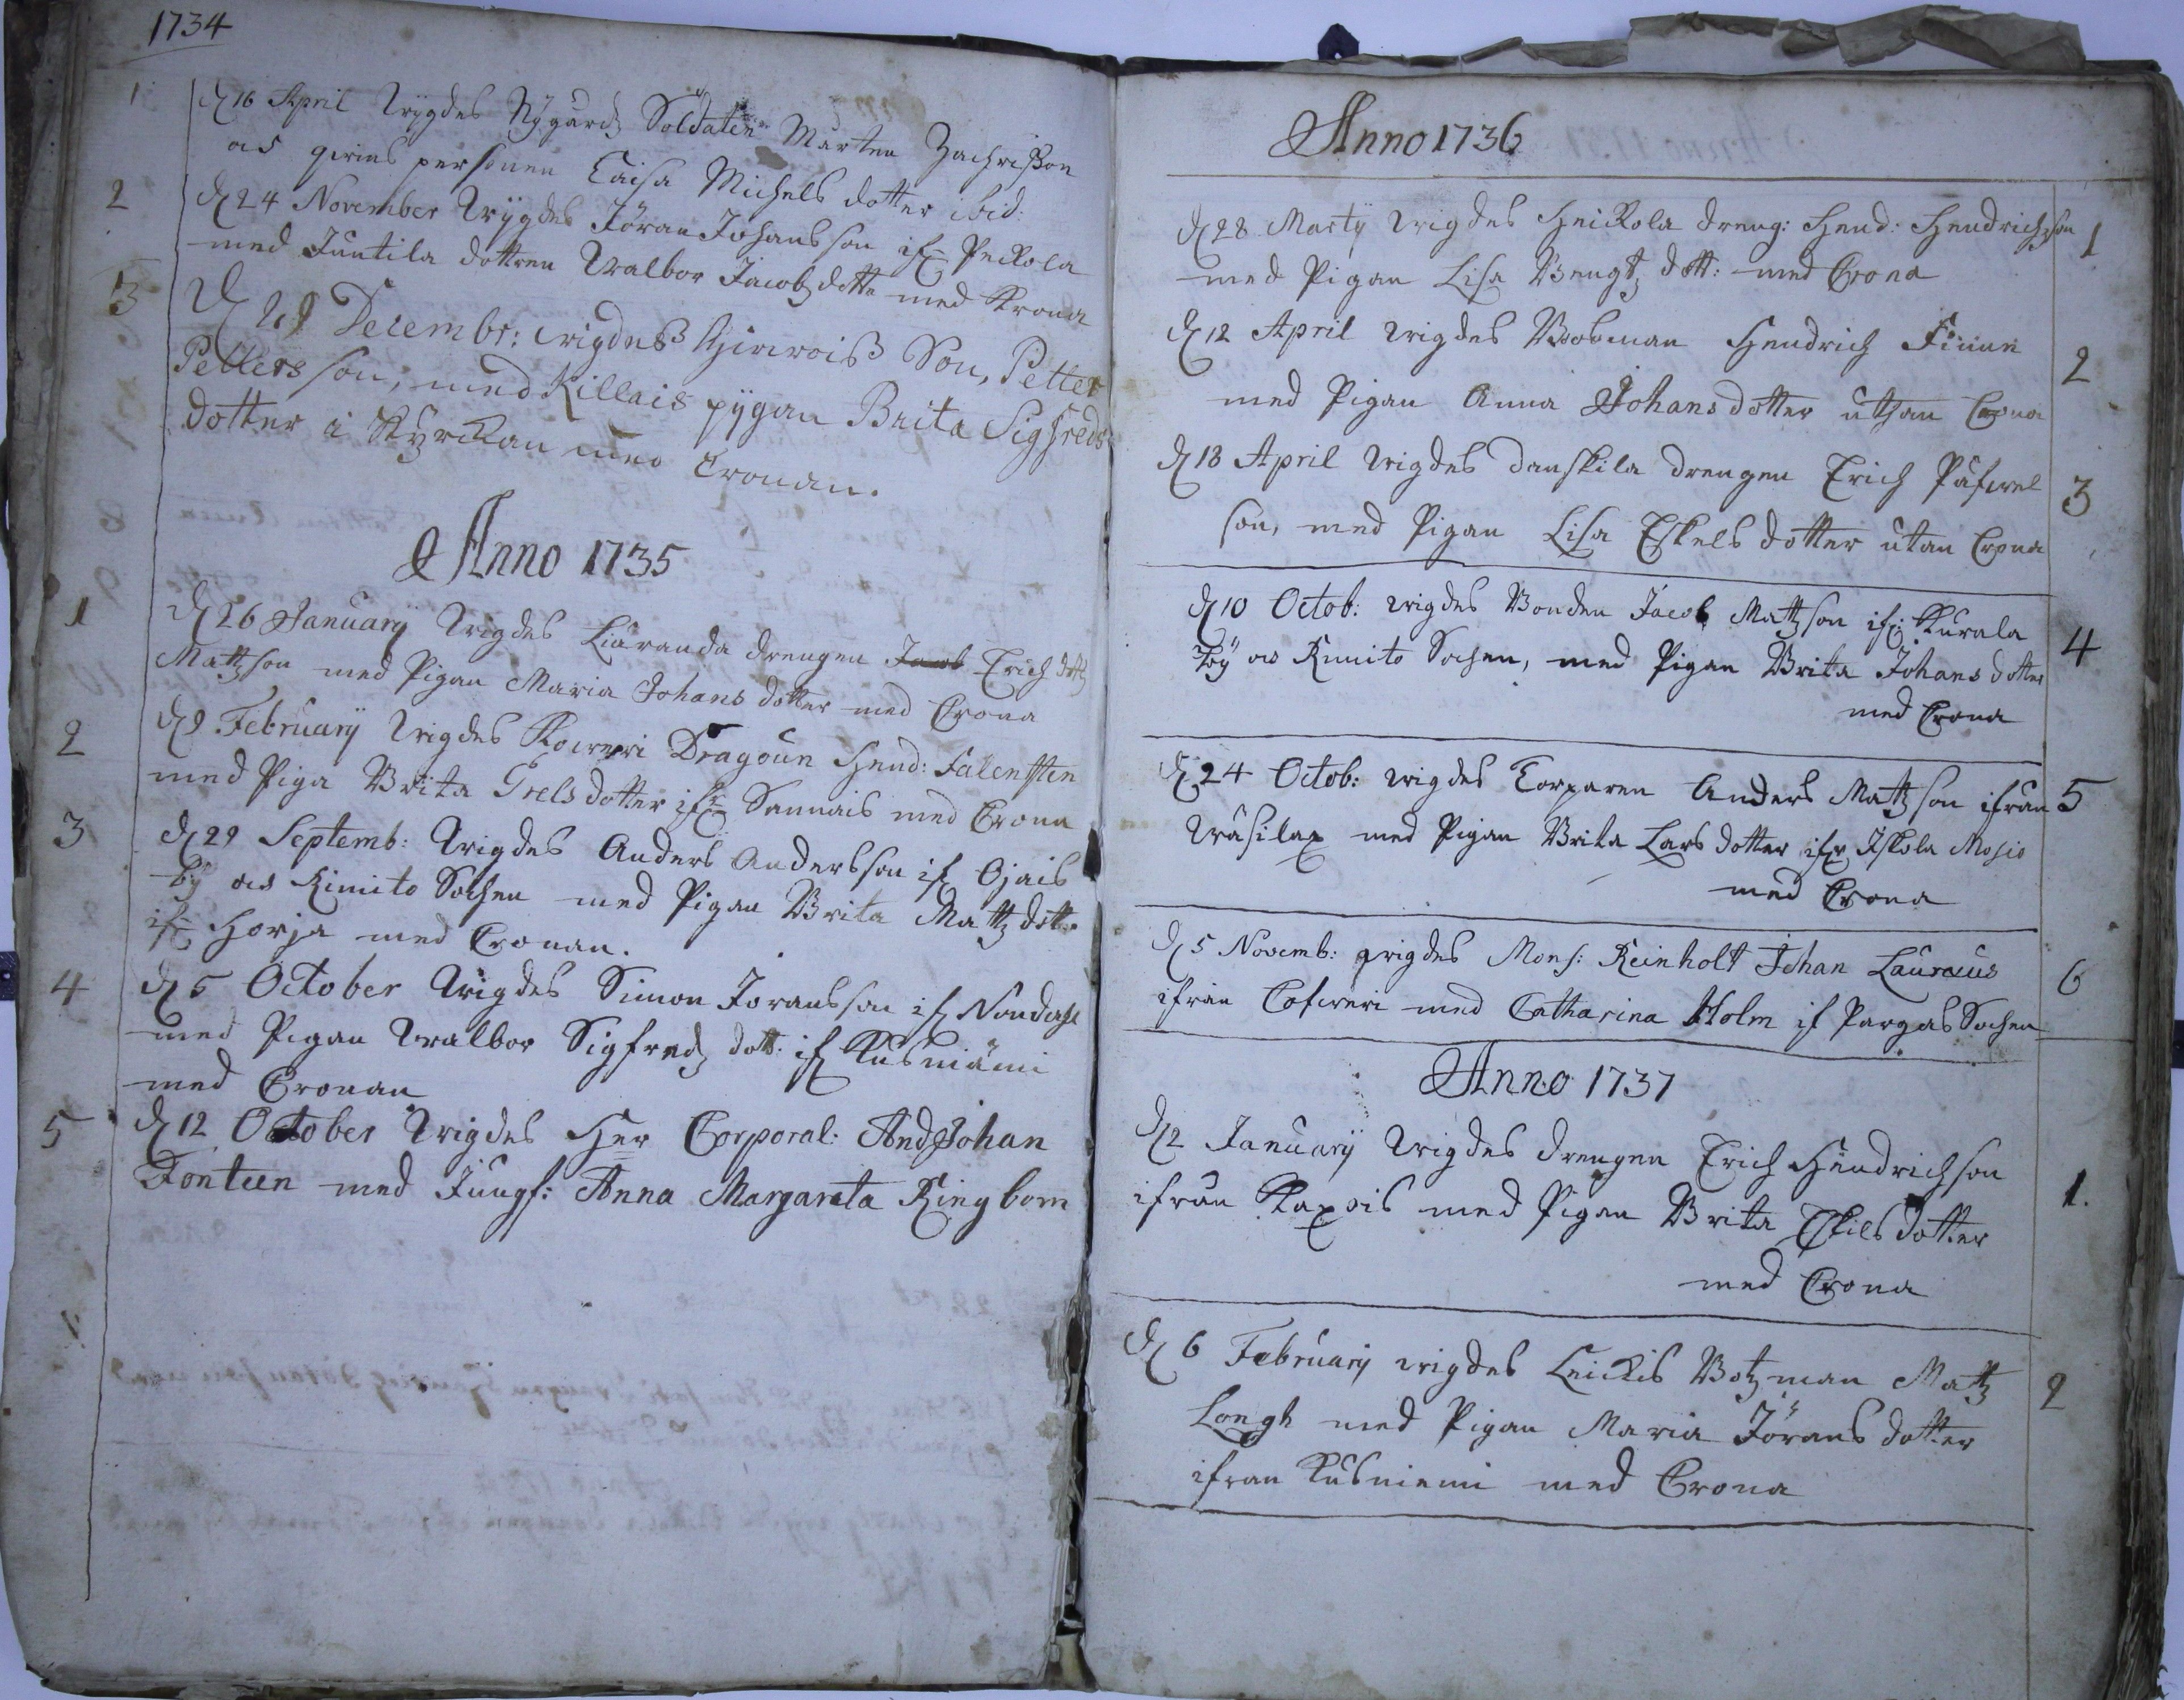 1734
1 d 16 April Wijgdes Nygårdz Soldaten Mårten Zachrisson
as qwins personen Caisa Michels dotter ibid:
2 d 24 November Wijgdes Jöran Johansson ifr Peckola
med Juntila dottren Walbor Jacobz dotter med Krona
3 d 29 Decembr: wigdes Hirwois Son, Petter
Petters son, med Killais pygan Brita Sigfreds
dotter i Kyrckan med Cronan.
Anno 1735
1 d 26 January Wigdes Liuranda drengen Jacob Erich
Mattzson med Pigan Maria Johans dotter med Crona
2 d 9 February Wigdes Dragoun Hend: Falensten
med Piga Brita Grels dotter ifr Sannais med Crona
3 d 29 Septemb: Wigdes Anders Andersson if Ojais
by as Kimito Sochen med Pigan Brita Mattz dotter
ifr Horja med Cronan.
4 d 5 October Wigdes Simon Joransson if
med Pigan Walbor Sigfredz dott: if Kusniämi
med Cronan
5 d 12 October Wigdes Her Corporal: And Johan
Fonteen med Jungf: Anna Margareta Ringbom
Anno 1736
d 28 Martij wigdes Heickola dreng: Hend: Hendrichzson 1
med Pigan Lisa Bengtz dott: med Crona
d 12 April wigdes Bosman Hendrich Finne 2
med Pigan Anna Johans dotter uthan Crona
d 18 April wigdes Danskila drengen Erich Påfwel 3
son, med Pigan Lisa Eskels dotter utan Crona
d 10 Octob: wigdes Bonden Jacob Mattzson ifr Kurala 4
by as Kimito Sochen, med Pigan Brita Johans dotter
med Crona
d 24 Octob: wigdes Torparen Anders Mattzson ifrån 5
Wäsilax med Pigan Brita Lars dotter ifr Iskola Mosio
med Crona
d 5 Novemb: wigdes Mons: Reinholt Johan Lauraeus 6
ifrån Cofweri med Catharina Holm if Pargas Sochen
Anno 1737
d 2 January Wigdes drengen Erich Hendrichson 1.
ifrån Kaxois med Pigan Brita Eskils dotter
med Crona
d 6 February wigdes Leickis Botzman Matz 2
Longh med Pigan Maria Jörans dotter
ifran Kusniemi med Crona